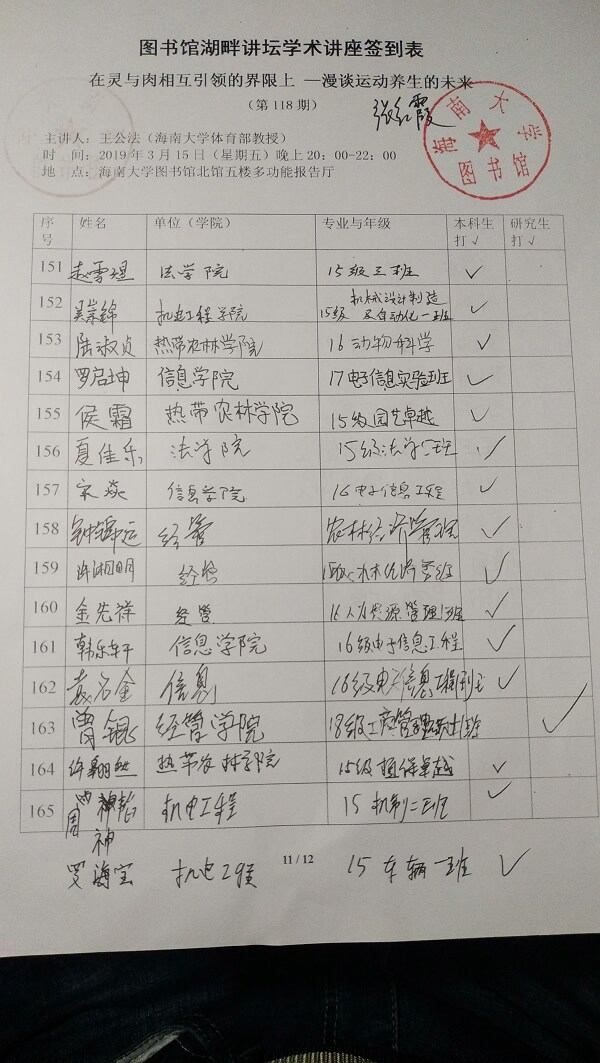 图书馆湖畔讲坛学术讲座签到表
在灵与肉相互引领的界限上 —漫谈运动养生的未来
（第 118 期）
张红霞
海南大学
图书馆
主讲人：王公法（海南大学体育部教授）
时 间：2019 年 3 月 15 日（星期五）晚上 20：00-22：00
地 点：海南大学图书馆北馆五楼多功能报告厅
序号 姓名 单位（学院） 专业与年级 本科生打√ 研究生打√
151 赵雪煜 法学院 15级三班 ✓
152 吴崇锦 机电工程学院 15级 机械设计制造及自动化一班 ✓
153 陆淑贞 热带农林学院 16动物科学 ✓
154 罗启坤 信息学院 17电子信息实验班 ✓
155 侯霜 热带农林学院 15级园艺卓越 ✓
156 夏佳乐 法学院 15级法学二班 ✓
157 宋焱 信息学院 16电子信息工程 ✓
158 钟锦运 经管 农林经济管理 ✓
159 许湘明 经管 ✓
160 金先祥 经管 16人力资源管理 ✓
161 韩乐轩 信息学院 16级电子信息工程 ✓
162 袁名金 信息 16级电子信息工程 ✓
163 曹锟 经管学院 18级工商管理硕士班 ✓
164 许翱 热带农林学院 15级植保卓越 ✓
165 周神 机电工程 15机制二班 ✓
罗海宝 机电工程 15车辆一班 ✓
11 / 12